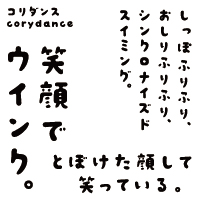 コリダンス
corydance
しっぽふりふり、
おしりふりふり、
シンクロナイズド
スイミング。
笑顔で
ウインク。
とぼけた顔して
笑っている。